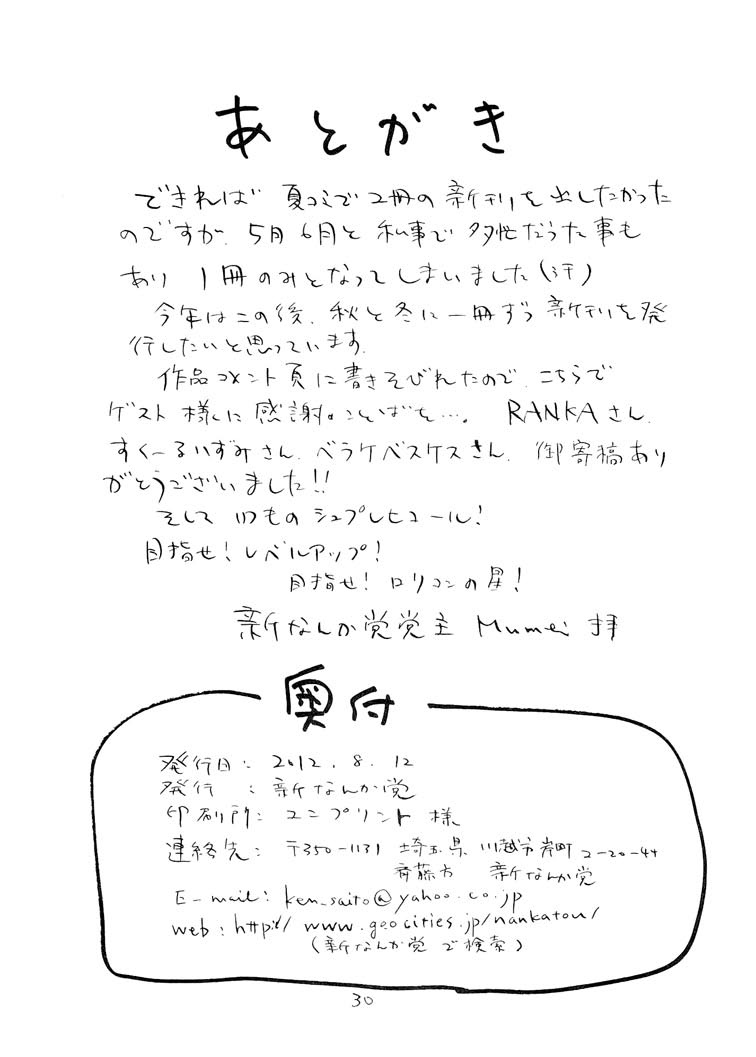 あとがき
できれば 夏コミで2冊の新刊を出したかった
のですが、5月6月と私事で多忙だった事も
あり 1冊のみとなってしまいました(汗)
今年はこの後、秋と冬に一冊ずつ新刊を発
行したいと思っています。
作品コメント頁に書きそびれたので、こちらで
ゲスト様に感謝のことばを…。 RANKAさん、
すくーるいずみさん、ベラケベスケスさん、御寄稿あり
がとうございました!!
そして いつもの シュプレヒコール!
目指せ!レベルアップ!
目指せ!ロリコンの星!
新なんか党党主 Mumei 拝
奥付
発行日: 2012.8.12
発行 : 新なんか党
印刷所: ユニプリント 様
連絡先: 〒350-1131 埼玉県 川越市岸町2-20-44
斉藤方 新なんか党
E-mail: ken_saito@yahoo.co.jp
web: http:// www.geocities.jp/nankatou/
(新なんか党 で検索)
30